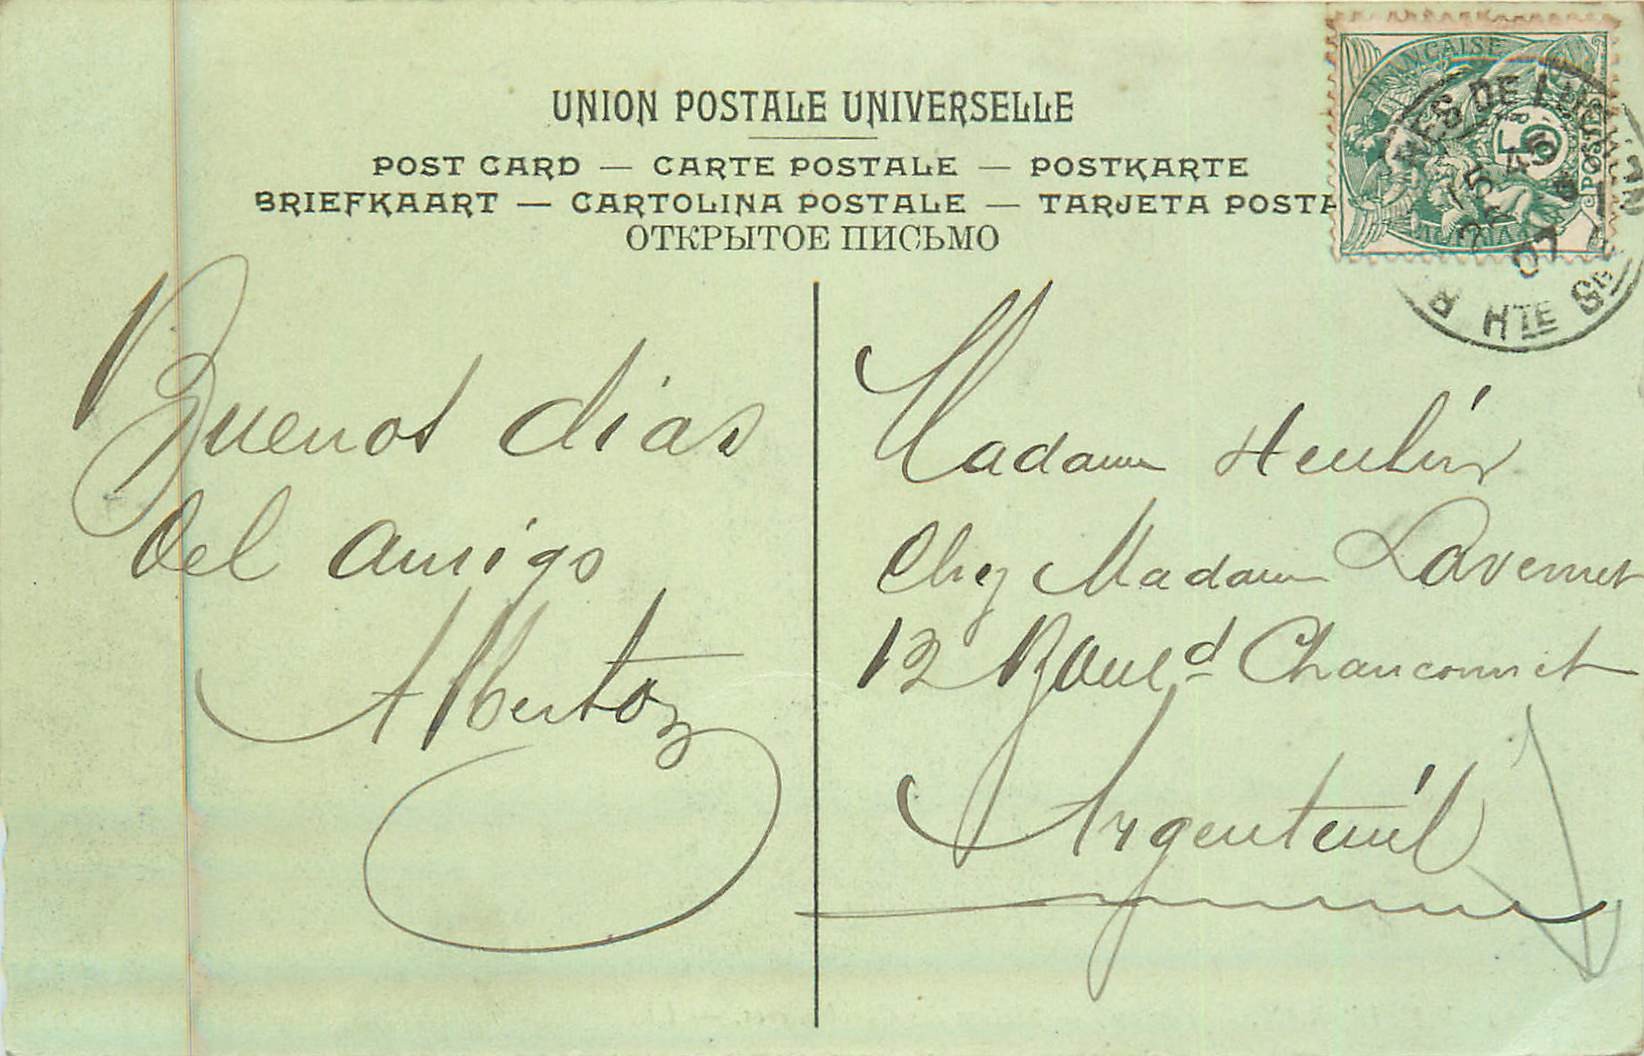 UNION POSTALE UNIVERSELLE
POST CARD — CARTE POSTALE — POSTKARTE
BRIEFKAART — CARTOLINA POSTALE — TARJETA POSTA
ОТКРЫТОЕ ПИСЬМО
FRANÇAISE
5
POSTES
NES DE LUCHON
15 45
07
HTE GNE
Buenos dias
del amigo
Alberto
Madame Heulin
Chez Madame Lavernet
12 Boul.d
Argenteuil